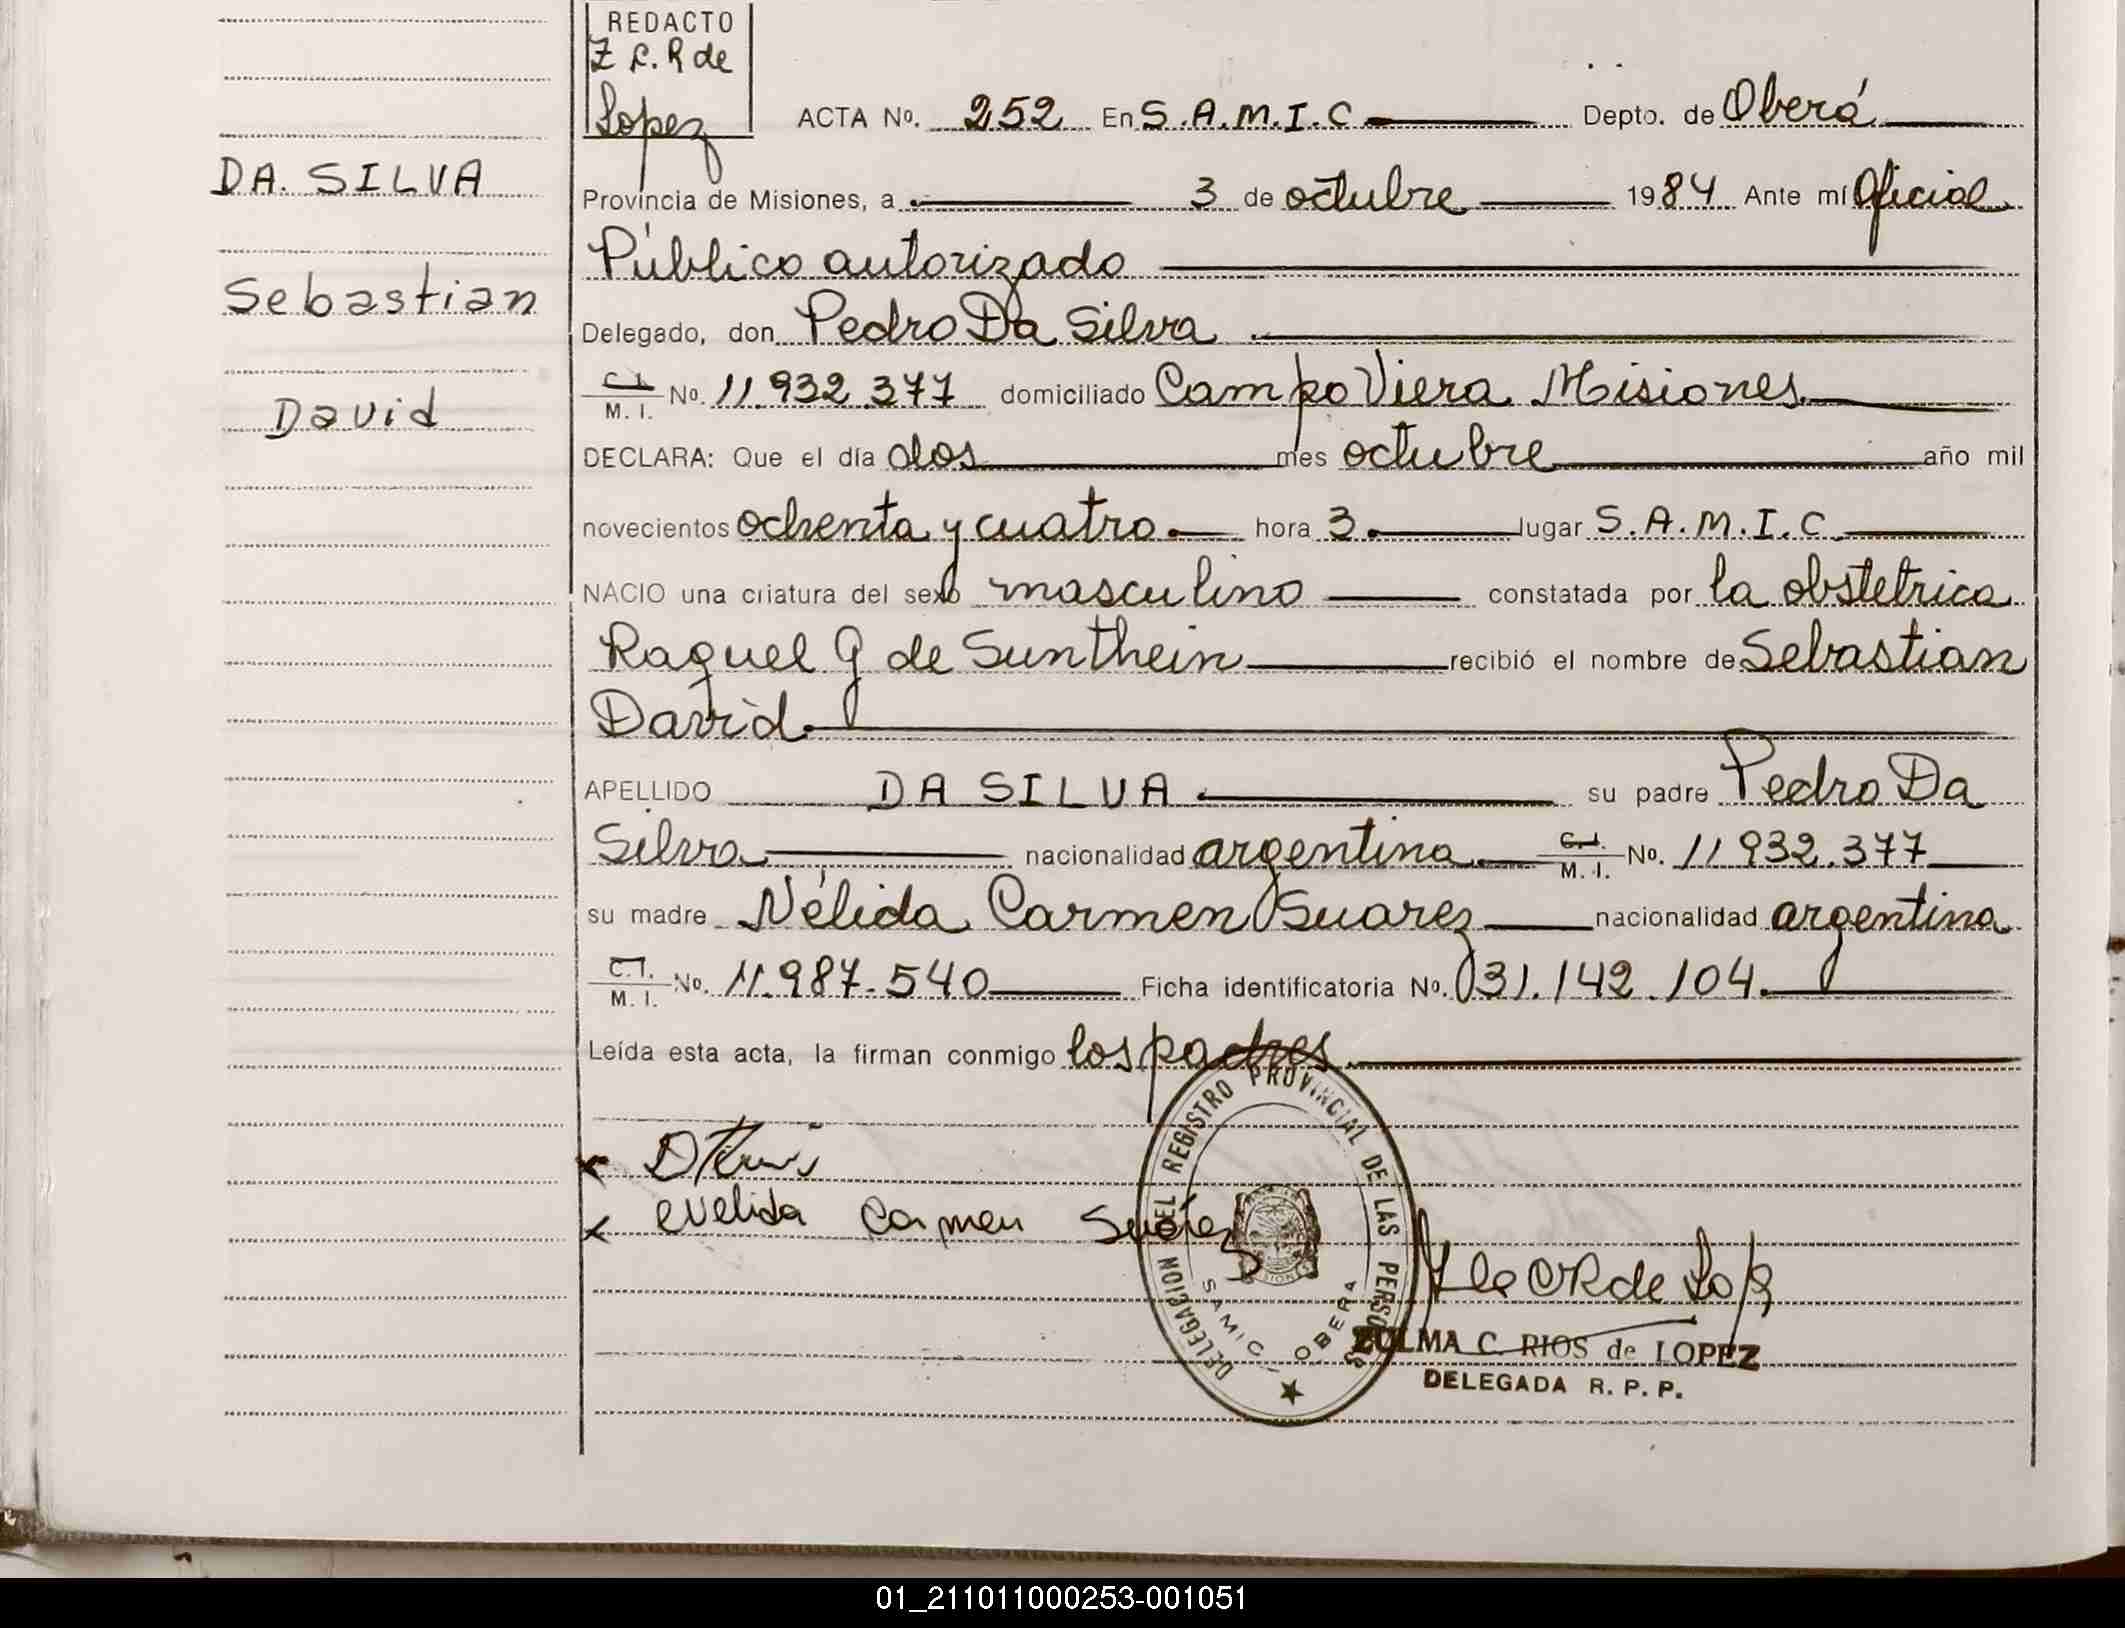 REDACTO
Z C. R de
Lopez
ACTA No. 252 En S.A.M.I.C Depto. de Oberá
DA. SILVA
Provincia de Misiones, a 3 de octubre 1984 Ante mí Oficial
Público autorizado
Sebastian
Delegado, don Pedro Da Silva
C.I.
M. I. No. 11.932.377 domiciliado Campo Viera Misiones
David
DECLARA: Que el día dos mes octubre año mil
novecientos ochenta y cuatro hora 3 lugar S.A.M.I.C.
NACIO una criatura del sexo masculino constatada por la obstetrica
Raquel G de Sunthein recibió el nombre de Sebastian
David
APELLIDO DA SILVA su padre Pedro Da
Silva nacionalidad argentina C.I.
M. I. No. 11 932.377
su madre Nélida Carmen Suarez nacionalidad argentina
C.I.
M. I. No. 11.987.540 Ficha identificatoria No. 31.142.104
Leída esta acta, la firman conmigo los padres
evelida Carmen Suárez
DELEGACION DEL REGISTRO PROVINCIAL DE LAS PERSONAS
SAMIC - OBERA
ZULMA C. RIOS de LOPEZ
DELEGADA R. P. P.
01_211011000253-001051